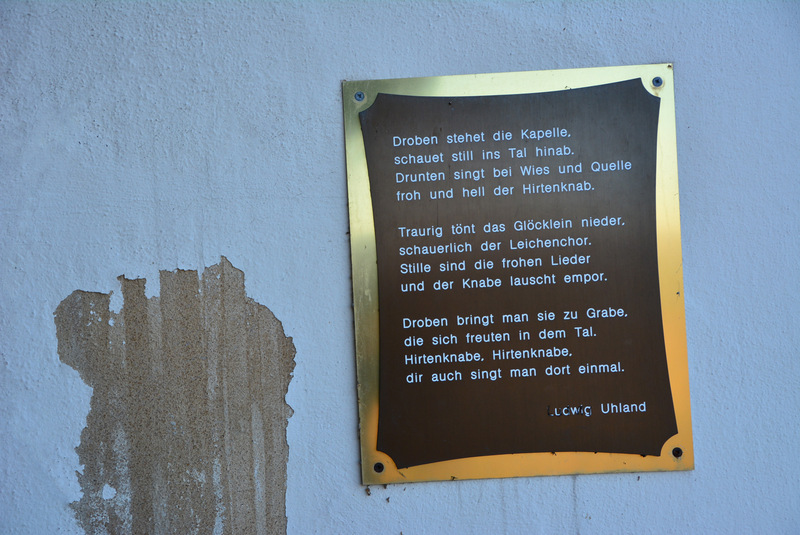 Droben stehet die Kapelle,
schauet still ins Tal hinab.
Drunten singt bei Wies und Quelle
froh und hell der Hirtenknab.
Traurig tönt das Glöcklein nieder,
schauerlich der Leichenchor.
Stille sind die frohen Lieder
und der Knabe lauscht empor.
Droben bringt man sie zu Grabe,
die sich freuten in dem Tal.
Hirtenknabe, Hirtenknabe,
dir auch singt man dort einmal.
Ludwig Uhland